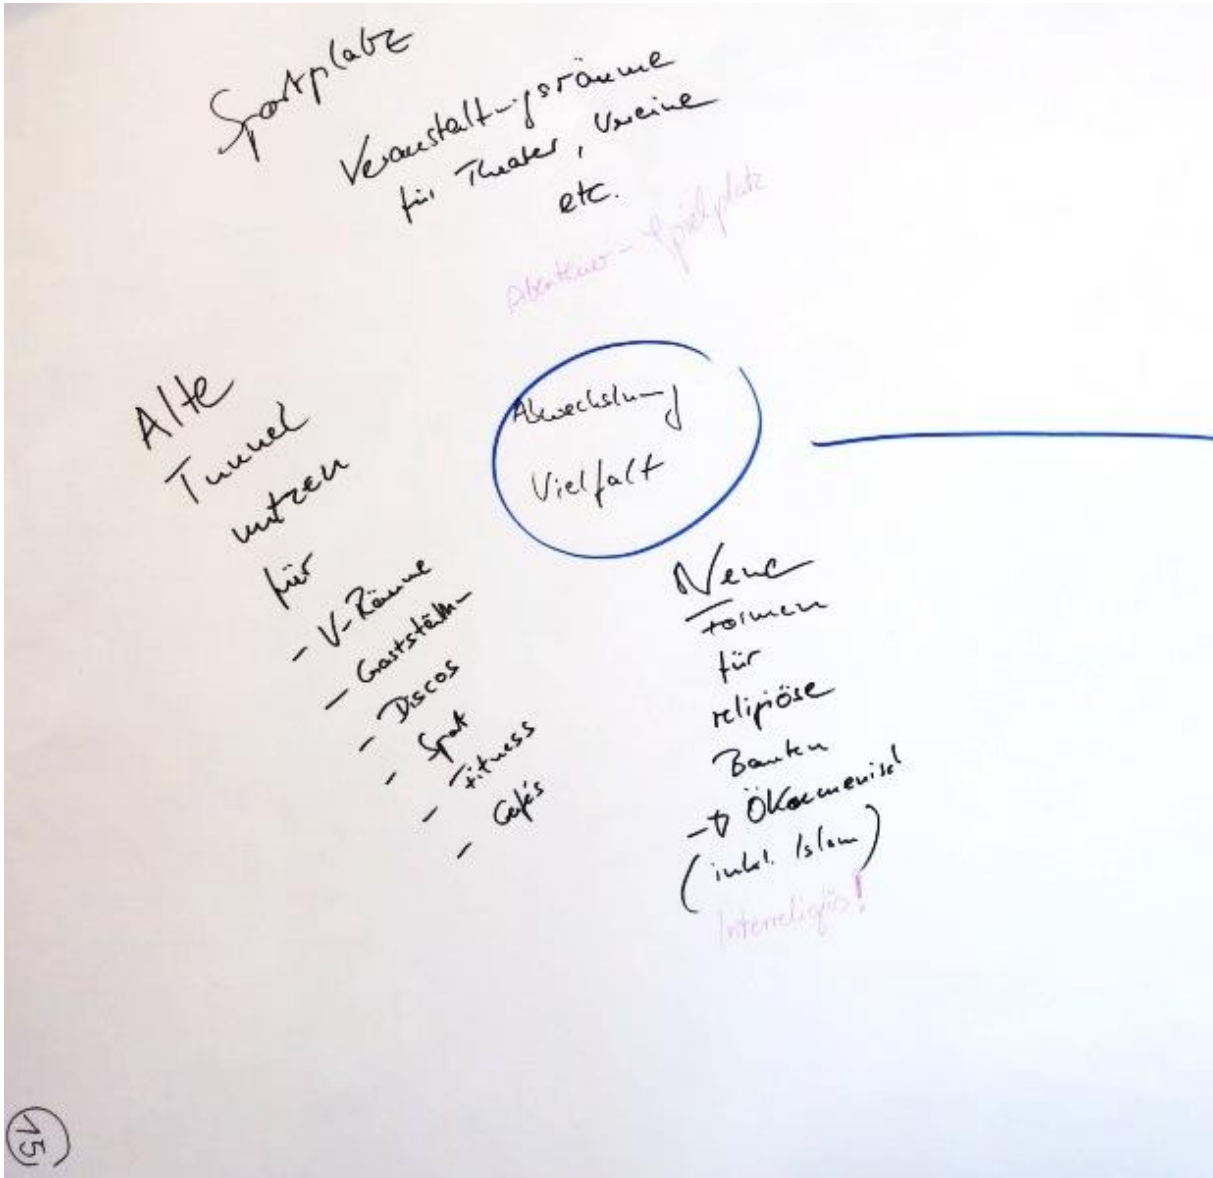 Sportplatz
Veranstaltungsräume
für Theater, Vereine
etc.
Abenteuer-Spielplatz
Abwechslung
Vielfalt
Alte
Tunnel
nutzen
für
- V-Räume
- Gaststätten
- Discos
- Sport
- Fitness
- Cafés
Neue
Formen
für
religiöse
Bauten
→ Ökumenisch
(inkl. Islam)
Interreligiös!
15